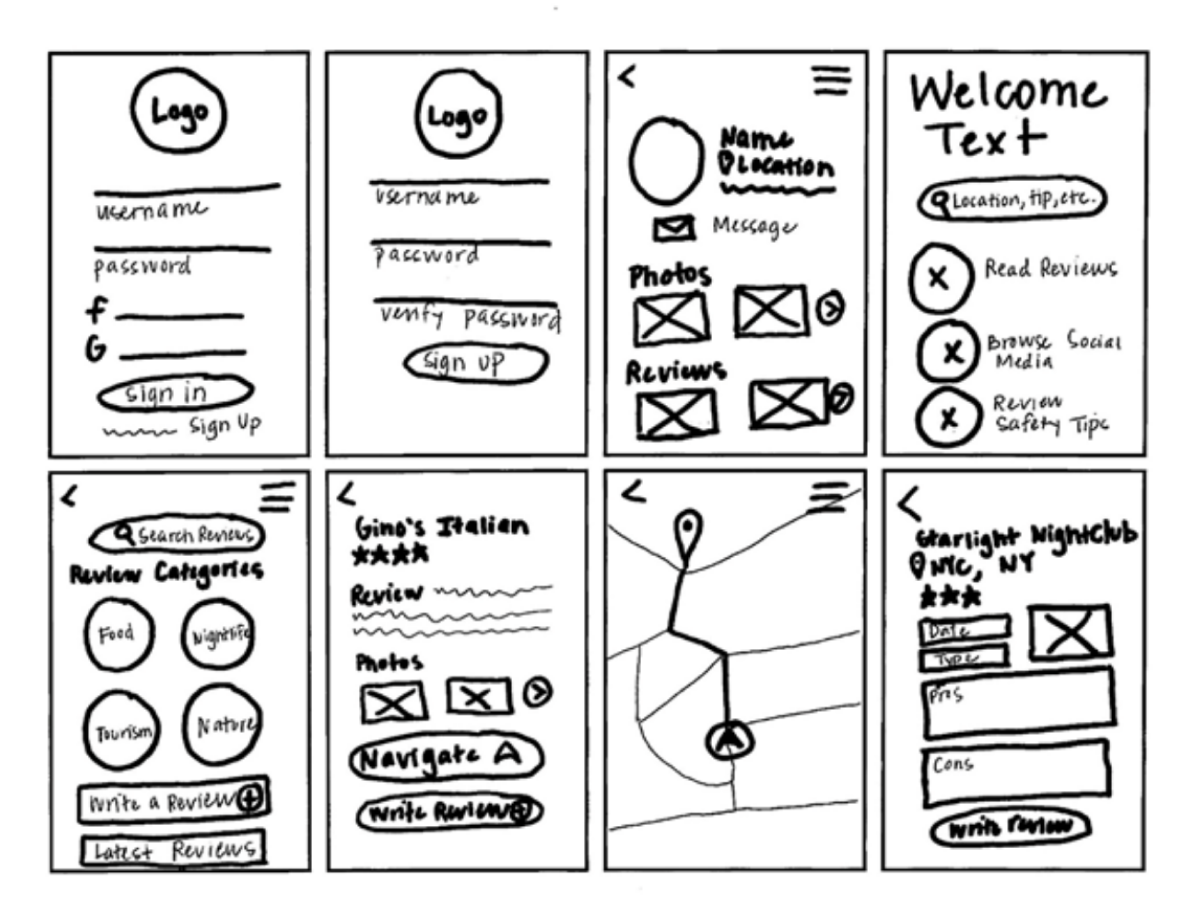 Logo
username
password
f
G
sign in
Sign Up
Logo
username
password
verify password
sign up
Name
Location
Message
Photos
Reviews
Welcome
Text
Location, tip, etc.
Read Reviews
Browse Social
Media
Review
Safety Tips
Search Reviews
Review Categories
Food
Nightlife
Tourism
Nature
Write a Review
Latest Reviews
Gino's Italian
Review
Photos
Navigate
Write Review
Starlight NightClub
NYC, NY
Date
Type
Pros
Cons
Write review